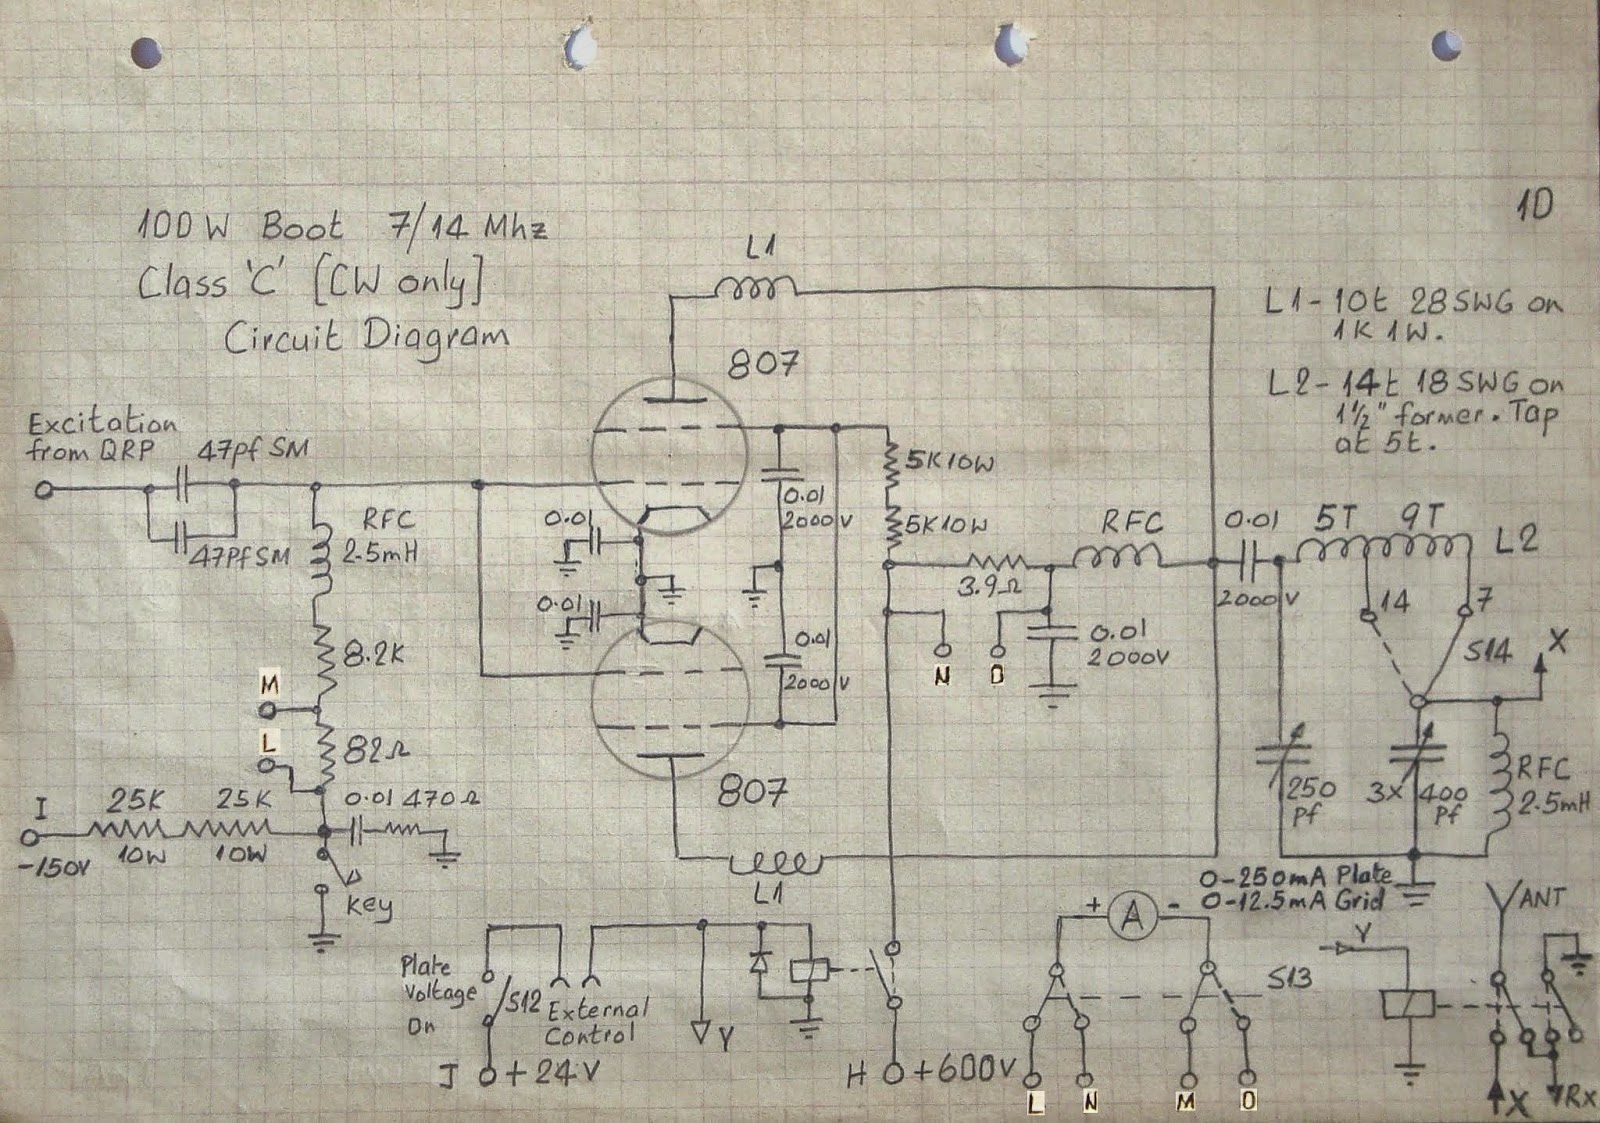 1D
100W Boot 7/14 Mhz
Class 'C' [CW only]
Circuit Diagram
L1
L1 - 10t 28 SWG on
1K 1W.
L2 - 14t 18 SWG on
1½" former. Tap
at 5t.
807
Excitation
from QRP
47pf SM
47Pf SM
RFC
2.5mH
0.01
0.01
0.01
2000V
0.01
2000V
5K10W
5K10W
3.9Ω
RFC
0.01
2000V
0.01
2000V
5T 9T
L2
14
7
S14
X
N
O
8.2K
M
L
82Ω
I
25K 25K
10W 10W
-150V
0.01 470Ω
Key
807
L1
250
Pf
3x 400
Pf
RFC
2.5mH
0-250mA Plate
0-12.5mA Grid
+ A -
ANT
Y
S13
Plate
Voltage
On
S12
External
Control
Y
J +24V
H +600V
L N M O
X
Rx